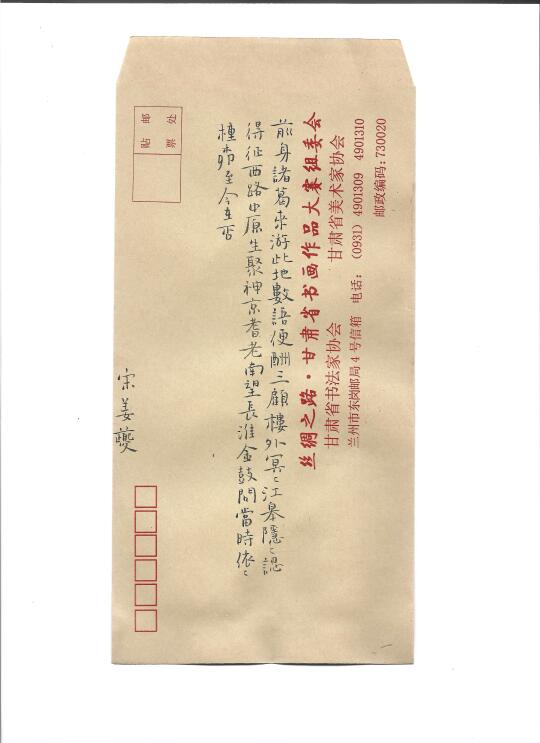 贴 邮
票 处
前身諸葛來游此地數語便酬三顧樓外冥〻江皋隱〻認
得征西路中原生聚神京耆老南望長淮金鼓問當時依〻
種柳至今在否
宋姜夔
丝绸之路·甘肃省书画作品大赛组委会
甘肃省书法家协会 甘肃省美术家协会
兰州市东岗邮局4号信箱 电话：(0931) 4901309 4901310
邮政编码:730020